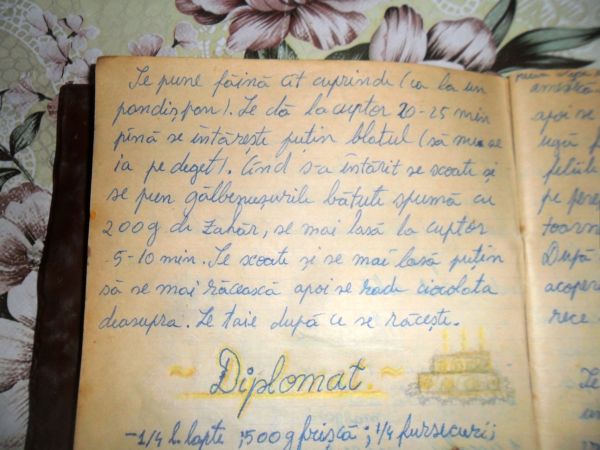 Se pune făină cît cuprinde (ca la un
pandișpan). Se dă la cuptor 20-25 min
pînă se întărește puțin blatul (să nu se
ia pe deget). Cînd s-a întărit se scoate și
se pun gălbenușurile bătute spumă cu
200g de zahăr, se mai lasă la cuptor
5-10 min. Se scoate și se mai lasă puțin
să se mai răcească apoi se rade ciocolata
deasupra. Se taie după ce se răcește.
~ Diplomat ~
-1/4 l. lapte ; 500 g frișcă ; 1/4 fursecuri;
apoi se
pe
După
acope
rece
Se